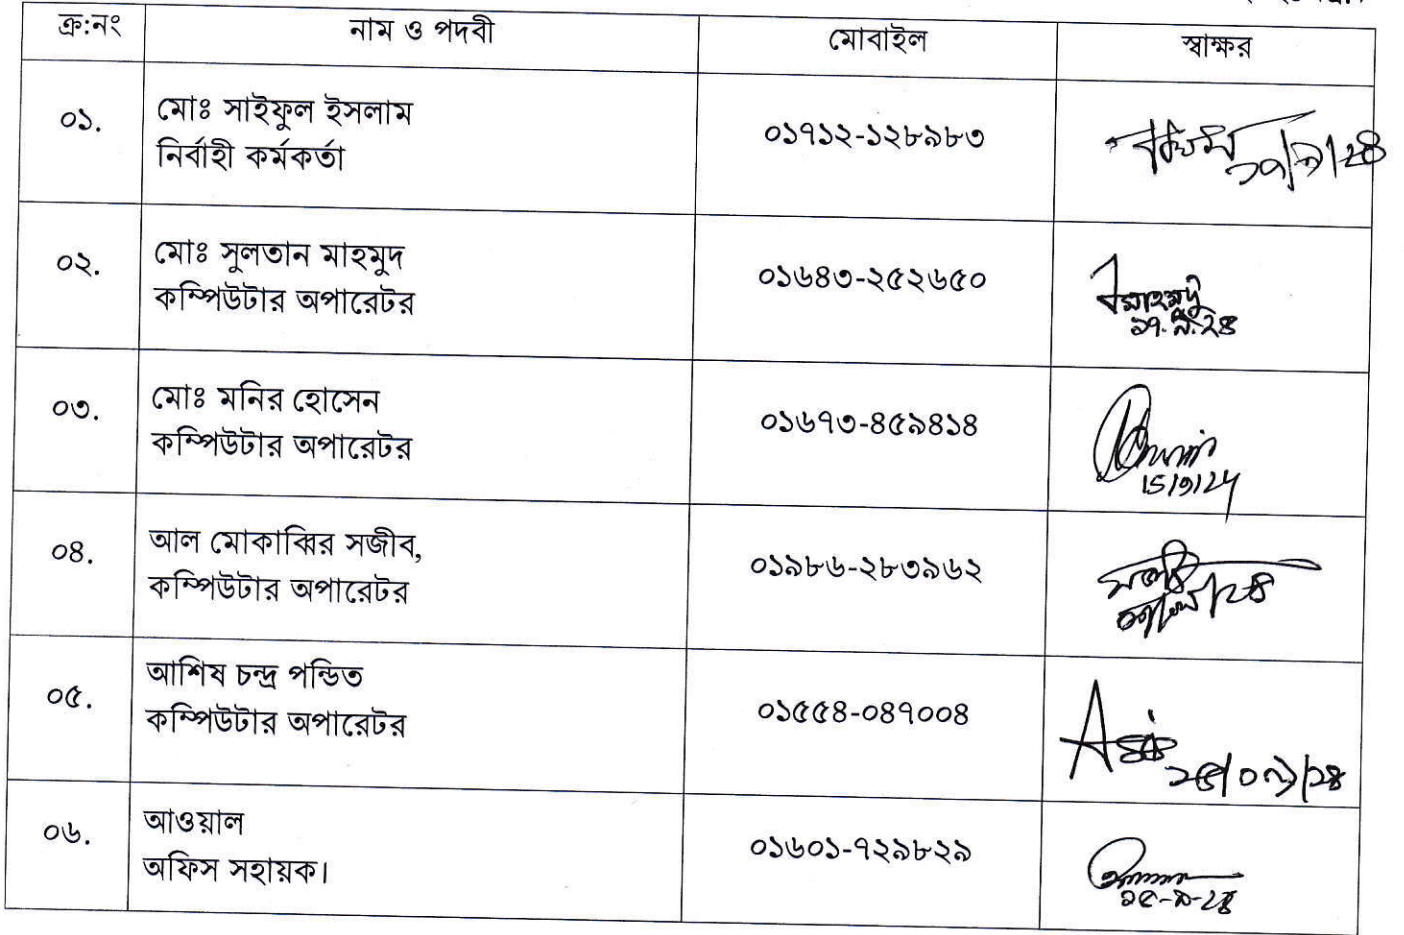 ক্র:নং নাম ও পদবী মোবাইল স্বাক্ষর
০১. মোঃ সাইফুল ইসলাম
নির্বাহী কর্মকর্তা
০১৭১২-১২৮৯৮৩
০২. মোঃ সুলতান মাহমুদ
কম্পিউটার অপারেটর
০১৬৪৩-২৫২৬৫০
০৩. মোঃ মনির হোসেন
কম্পিউটার অপারেটর
০১৬৭৩-৪৫৯৪১৪
15/9/24
০৪. আল মোকাব্বির সজীব,
কম্পিউটার অপারেটর
০১৯৮৬-২৮৩৯৬২
০৫. আশিষ চন্দ্র পন্ডিত
কম্পিউটার অপারেটর
০১৫৫৪-০৪৭০০৪
০৬. আওয়াল
অফিস সহায়ক।
০১৬০১-৭২৯৮২৯
১৫-৯-২৪